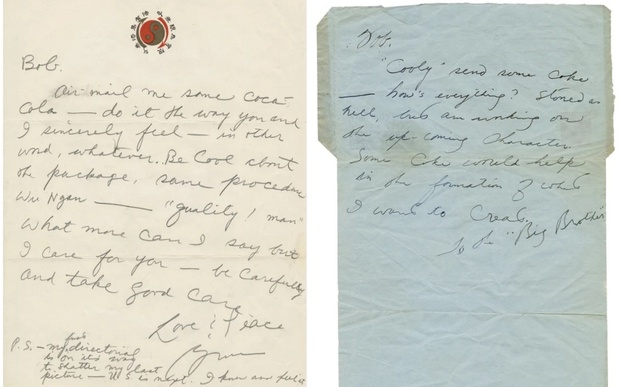 Bob,
Air mail me some Coca-
Cola — do it the way you and
I sincerely feel — in other
word, whatever. Be Cool about
the package, same procedure
Wu Ngan — "quality! man"
What more can I say but
I care for you — be Carefully
and take Good Care
Love & Peace
P.S. — my first directorial
is on its way
to shatter my last
picture — U.S. is next. I know and feel it
Bob,
"Cooly" send some coke
— how's everything? Stoned as
hell, but am working on
the up-coming character.
Some Coke would help
in the formation of what
I want to Create.
"Big Brother"